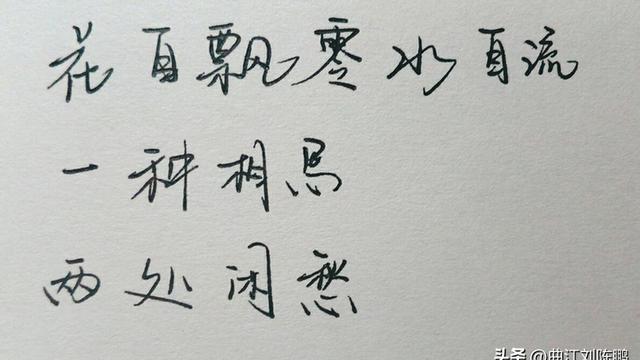 花自飘零水自流
一种相思
两处闲愁
头条 @曲江刘陈鹏